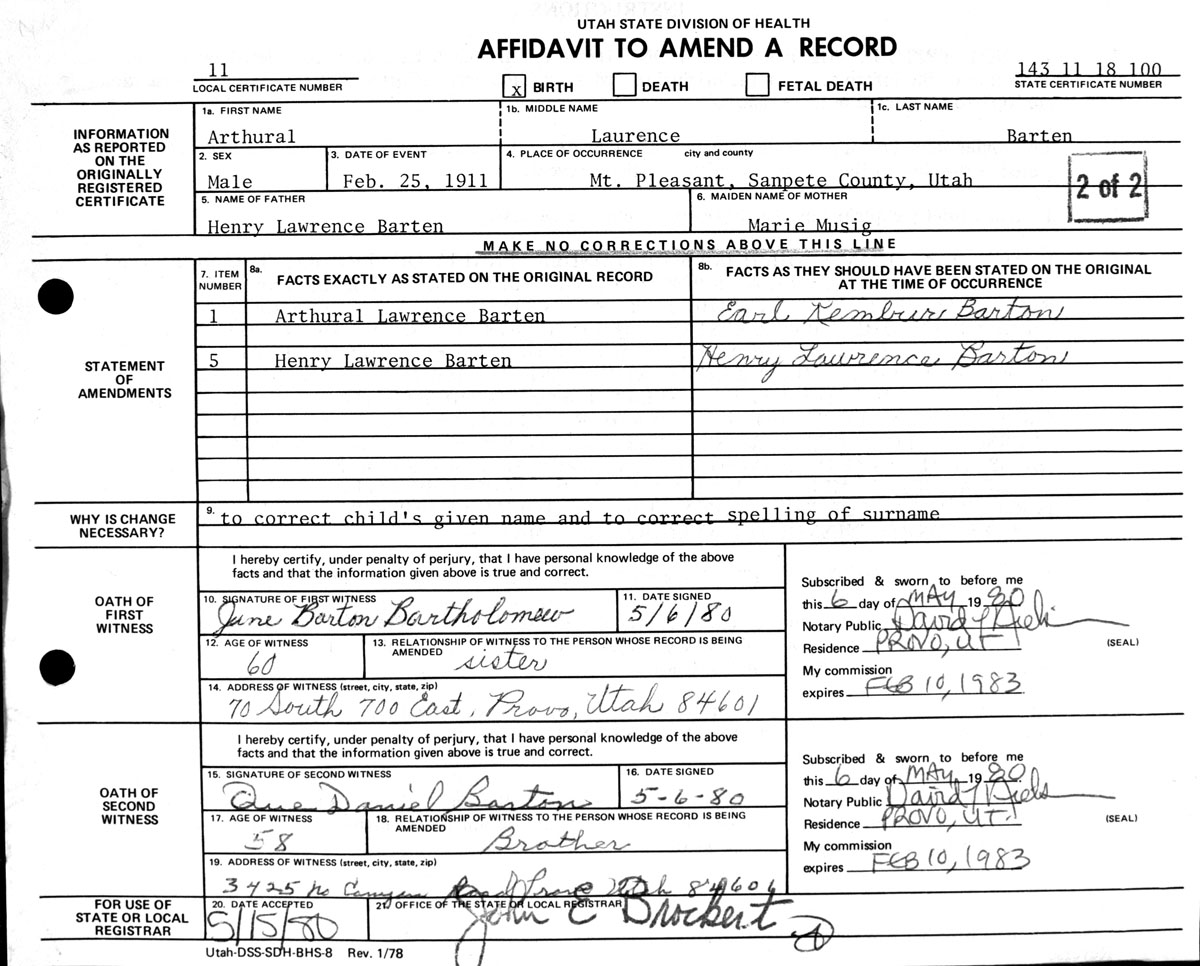 UTAH STATE DIVISION OF HEALTH
AFFIDAVIT TO AMEND A RECORD
11
LOCAL CERTIFICATE NUMBER
x BIRTH DEATH FETAL DEATH
143 11 18 100
STATE CERTIFICATE NUMBER
INFORMATION AS REPORTED ON THE ORIGINALLY REGISTERED CERTIFICATE
1a. FIRST NAME 1b. MIDDLE NAME 1c. LAST NAME
Arthural Laurence Barten
2. SEX 3. DATE OF EVENT 4. PLACE OF OCCURRENCE city and county
Male Feb. 25, 1911 Mt. Pleasant, Sanpete County, Utah
2 of 2
5. NAME OF FATHER 6. MAIDEN NAME OF MOTHER
Henry Lawrence Barten Marie Musig
MAKE NO CORRECTIONS ABOVE THIS LINE
STATEMENT OF AMENDMENTS
7. ITEM NUMBER 8a. FACTS EXACTLY AS STATED ON THE ORIGINAL RECORD 8b. FACTS AS THEY SHOULD HAVE BEEN STATED ON THE ORIGINAL AT THE TIME OF OCCURRENCE
1 Arthural Lawrence Barten Earl Barton
5 Henry Lawrence Barten Henry Lawrence Barton
WHY IS CHANGE NECESSARY?
9. to correct child's given name and to correct spelling of surname
OATH OF FIRST WITNESS
I hereby certify, under penalty of perjury, that I have personal knowledge of the above
facts and that the information given above is true and correct.
10. SIGNATURE OF FIRST WITNESS 11. DATE SIGNED
June Barton Bartholomew 5/6/80
12. AGE OF WITNESS 13. RELATIONSHIP OF WITNESS TO THE PERSON WHOSE RECORD IS BEING AMENDED
60 sister
14. ADDRESS OF WITNESS (street, city, state, zip)
70 South 700 East, Provo, Utah 84601
Subscribed & sworn to before me
this 6 day of MAY 19 80
Notary Public David
Residence PROVO, UT
(SEAL)
My commission
expires FEB 10, 1983
OATH OF SECOND WITNESS
I hereby certify, under penalty of perjury, that I have personal knowledge of the above
facts and that the information given above is true and correct.
15. SIGNATURE OF SECOND WITNESS 16. DATE SIGNED
Daniel Barton 5-6-80
17. AGE OF WITNESS 18. RELATIONSHIP OF WITNESS TO THE PERSON WHOSE RECORD IS BEING AMENDED
58 Brother
19. ADDRESS OF WITNESS (street, city, state, zip)
3425 No Canyon Road Provo Utah 84601
Subscribed & sworn to before me
this 6 day of MAY 19 80
Notary Public David
Residence PROVO, UT.
(SEAL)
My commission
expires FEB 10, 1983
FOR USE OF STATE OR LOCAL REGISTRAR
20. DATE ACCEPTED 21. OFFICE OF THE STATE OR LOCAL REGISTRAR
5/15/80 John E Brockert
Utah-DSS-SDH-BHS-8 Rev. 1/78